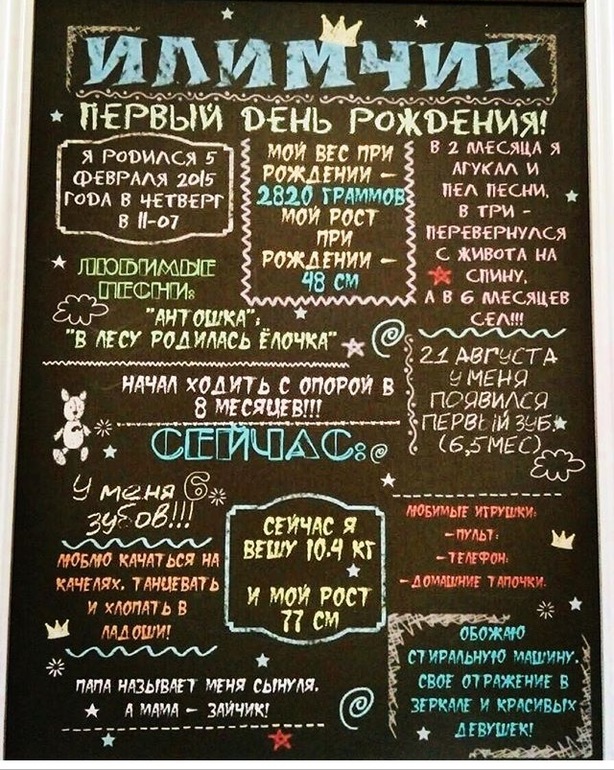 ИЛИМЧИК
ПЕРВЫЙ ДЕНЬ РОЖДЕНИЯ!
Я РОДИЛСЯ 5
ФЕВРАЛЯ 2015
ГОДА В ЧЕТВЕРГ
В 11-07
МОЙ ВЕС ПРИ
РОЖДЕНИИ –
2820 ГРАММОВ
МОЙ РОСТ
ПРИ
РОЖДЕНИИ –
48 СМ
В 2 МЕСЯЦА Я
АГУКАЛ И
ПЕЛ ПЕСНИ,
В ТРИ –
ПЕРЕВЕРНУЛСЯ
С ЖИВОТА НА
СПИНУ,
А В 6 МЕСЯЦЕВ
СЕЛ!!!
ЛЮБИМЫЕ
ПЕСНИ:
"АНТОШКА";
"В ЛЕСУ РОДИЛАСЬ ЁЛОЧКА"
21 АВГУСТА
У МЕНЯ
ПОЯВИЛСЯ
ПЕРВЫЙ ЗУБ
(6,5МЕС)
НАЧАЛ ХОДИТЬ С ОПОРОЙ В
8 МЕСЯЦЕВ!!!
СЕЙЧАС:
У меня 6
зубов!!!
ЛЮБЛЮ КАЧАТЬСЯ НА
КАЧЕЛЯХ, ТАНЦЕВАТЬ
И ХЛОПАТЬ В
ЛАДОШИ!
СЕЙЧАС Я
ВЕШУ 10.4 КГ
И МОЙ РОСТ
77 СМ
ЛЮБИМЫЕ ИГРУШКИ:
–ПУЛЬТ;
–ТЕЛЕФОН;
–ДОМАШНИЕ ТАПОЧКИ.
ОБОЖАЮ
СТИРАЛЬНУЮ МАШИНУ,
СВОЕ ОТРАЖЕНИЕ В
ЗЕРКАЛЕ И КРАСИВЫХ
ДЕВУШЕК!
ПАПА НАЗЫВАЕТ МЕНЯ СЫНУЛЯ,
А МАМА – ЗАЙЧИК!